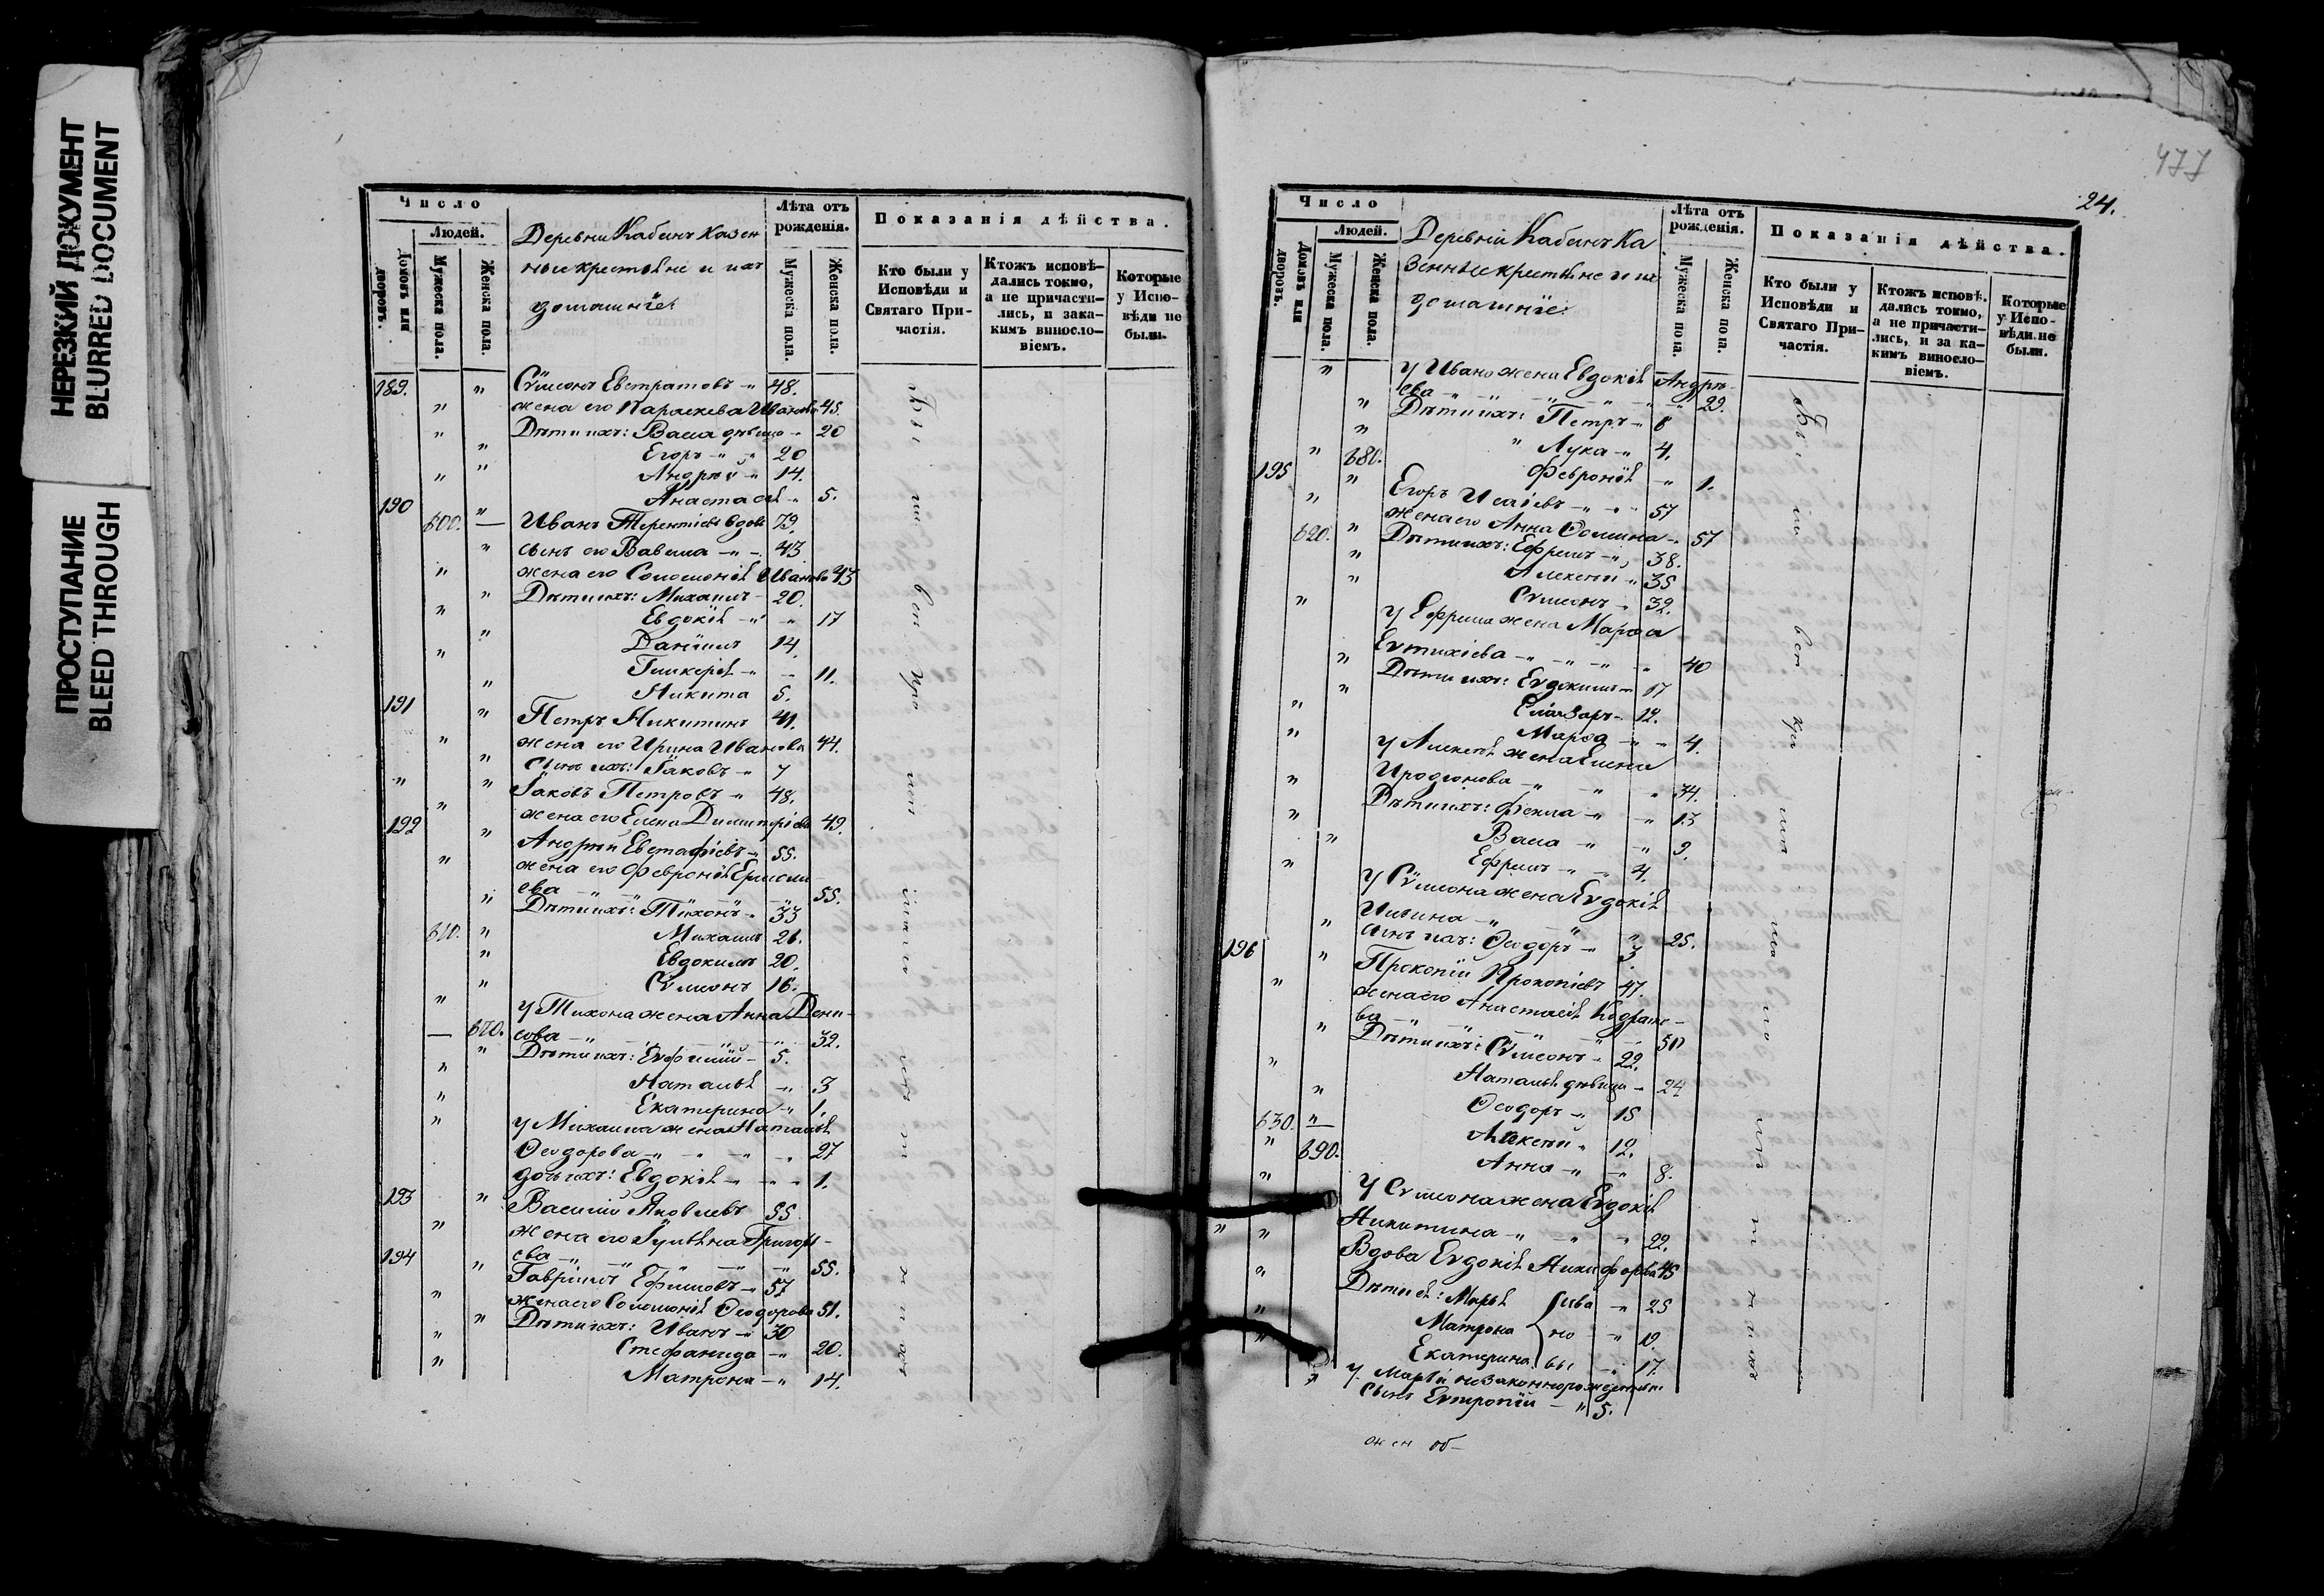 НЕРЕЗКИЙ ДОКУМЕНТ
BLURRED DOCUMENT
ПРОСТУПАНИЕ
BLEED THROUGH
Число
Людей.
Домовъ или дворовъ.
Мужеска пола.
Женска пола.
Деревни Кабанъ казен
ные крестьяне и ихъ
домашніе
Лѣта отъ рожденія.
Мужеска пола.
Женска пола.
Показанія дѣйства.
Кто были у Исповѣди и Святаго Причастія.
Ктожъ исповѣдались токмо, а не причастились, и закакимъ винословіемъ.
Которые у Исповѣди не были.
189. " Сѵмеонъ Евстратовъ - " 48.
" жена его Параскева Иванова 45.
" Дѣти ихъ: Васса дѣвица - 20
" Егоръ - " - " 20
" Андрей - " 14.
" Анастасія - 5.
190 " Иванъ Терентіевъ вдовъ 79.
600. — сынъ его Вавила - " - 43
" жена его Соломонія Иванова 43
" Дѣти ихъ: Михаилъ - 20.
" Евдокія - " - " 17
" Даніилъ 14.
" Гликерія - " - 11.
" Никита 5.
191 " Петръ Никитинъ 41.
" жена его Ирина Иванова 44.
" Сынъ ихъ: Іаковъ - " 7
" " Іаковъ Петровъ - " 48.
" жена его Елена Димитріева 49.
192 " Андрей Евстафіевъ - 55.
" жена его Февронія Ермола
ева - " - " - " 55.
" Дѣти ихъ: Тихонъ - 33
610. " Михаилъ 26.
" Евдокимъ 20.
" Сѵмеонъ 16.
" У Тихона жена Анна Дени-
сова - " - " - " 32.
— 670. Дѣти ихъ: Евфимій - 5.
" Наталья - " 3
" Екатерина - " 1.
" У Михаила жена Наталья
Ѳеодорова - " - " - " 27
" дочь ихъ: Евдокія - " - " 1.
193 " Василій Яковлевъ 55
" жена его Іуліана Григорь-
ева - " - " - " 55.
194 " Гавріилъ Ефимовъ - " 57
" жена его Соломонія Ѳеодорова 51.
" Дѣти ихъ: Иванъ - " 30
" Стефанида - " 20.
" Матрона - " 14.
477
24.
Число
Людей.
Домовъ или дворовъ.
Мужеска пола.
Женска пола.
Деревни Кабанъ Ка
зенные крестьяне и их
домашніе
Лѣта отъ рожденія.
Мужеска пола.
Женска пола.
Показанія дѣйства.
Кто были у Исповѣди и Святаго Причастія.
Ктожъ исповѣдались токмо, а не причастились, и за какимъ винословіемъ.
Которые у Исповѣди не были.
" У Ивана жена Евдокія Андре-
ева - " - " - " 29.
" Дѣти ихъ: Петръ - " 8
" " Лука - " 4.
" 680. Февронія - " 1.
195 " Егоръ Исаіевъ - " - " 57
" жена его Анна Ѳомина - 57
620. " Дѣти ихъ: Ефремъ - " 38.
" Алексѣй - " 35
" Сѵмеонъ - 32.
" У Ефрема жена Марѳа
Евтихіева - " - " - " 40
" Дѣти ихъ: Евдокимъ - 17
" Елеазаръ - 12.
" Марѳа - " - " 4.
" У Алексѣя жена Елена
Иродіонова - " - " 34.
" Дѣти ихъ: Ѳекла - " - " 13
" Васса - " - " 9.
" Ефремъ - " - " 4.
" У Сѵмеона жена Евдокія
Ильина - " - " 25.
" сынъ ихъ: Ѳеодоръ - " 3
196 " Прокопій Прокопіевъ 47.
" жена его Анастасія Кодрато-
ва - " - " - " 50
" Дѣти ихъ: Сѵмеонъ - 22.
" Наталья дѣвица - 24
" Ѳеодоръ - " 15
630. " Алексѣй - 12.
" 690. Анна - " - " 8.
" У Сѵмеона жена Евдокія
Никитина - " - " 22.
" " Вдова Евдокія Никифорова 45
" Дѣти ея: Марья - " 25
" Матрона - " 19.
" Екатерина - " 17.
" У Марьи незаконнорожденны
Сынъ Евтропій - " 5.